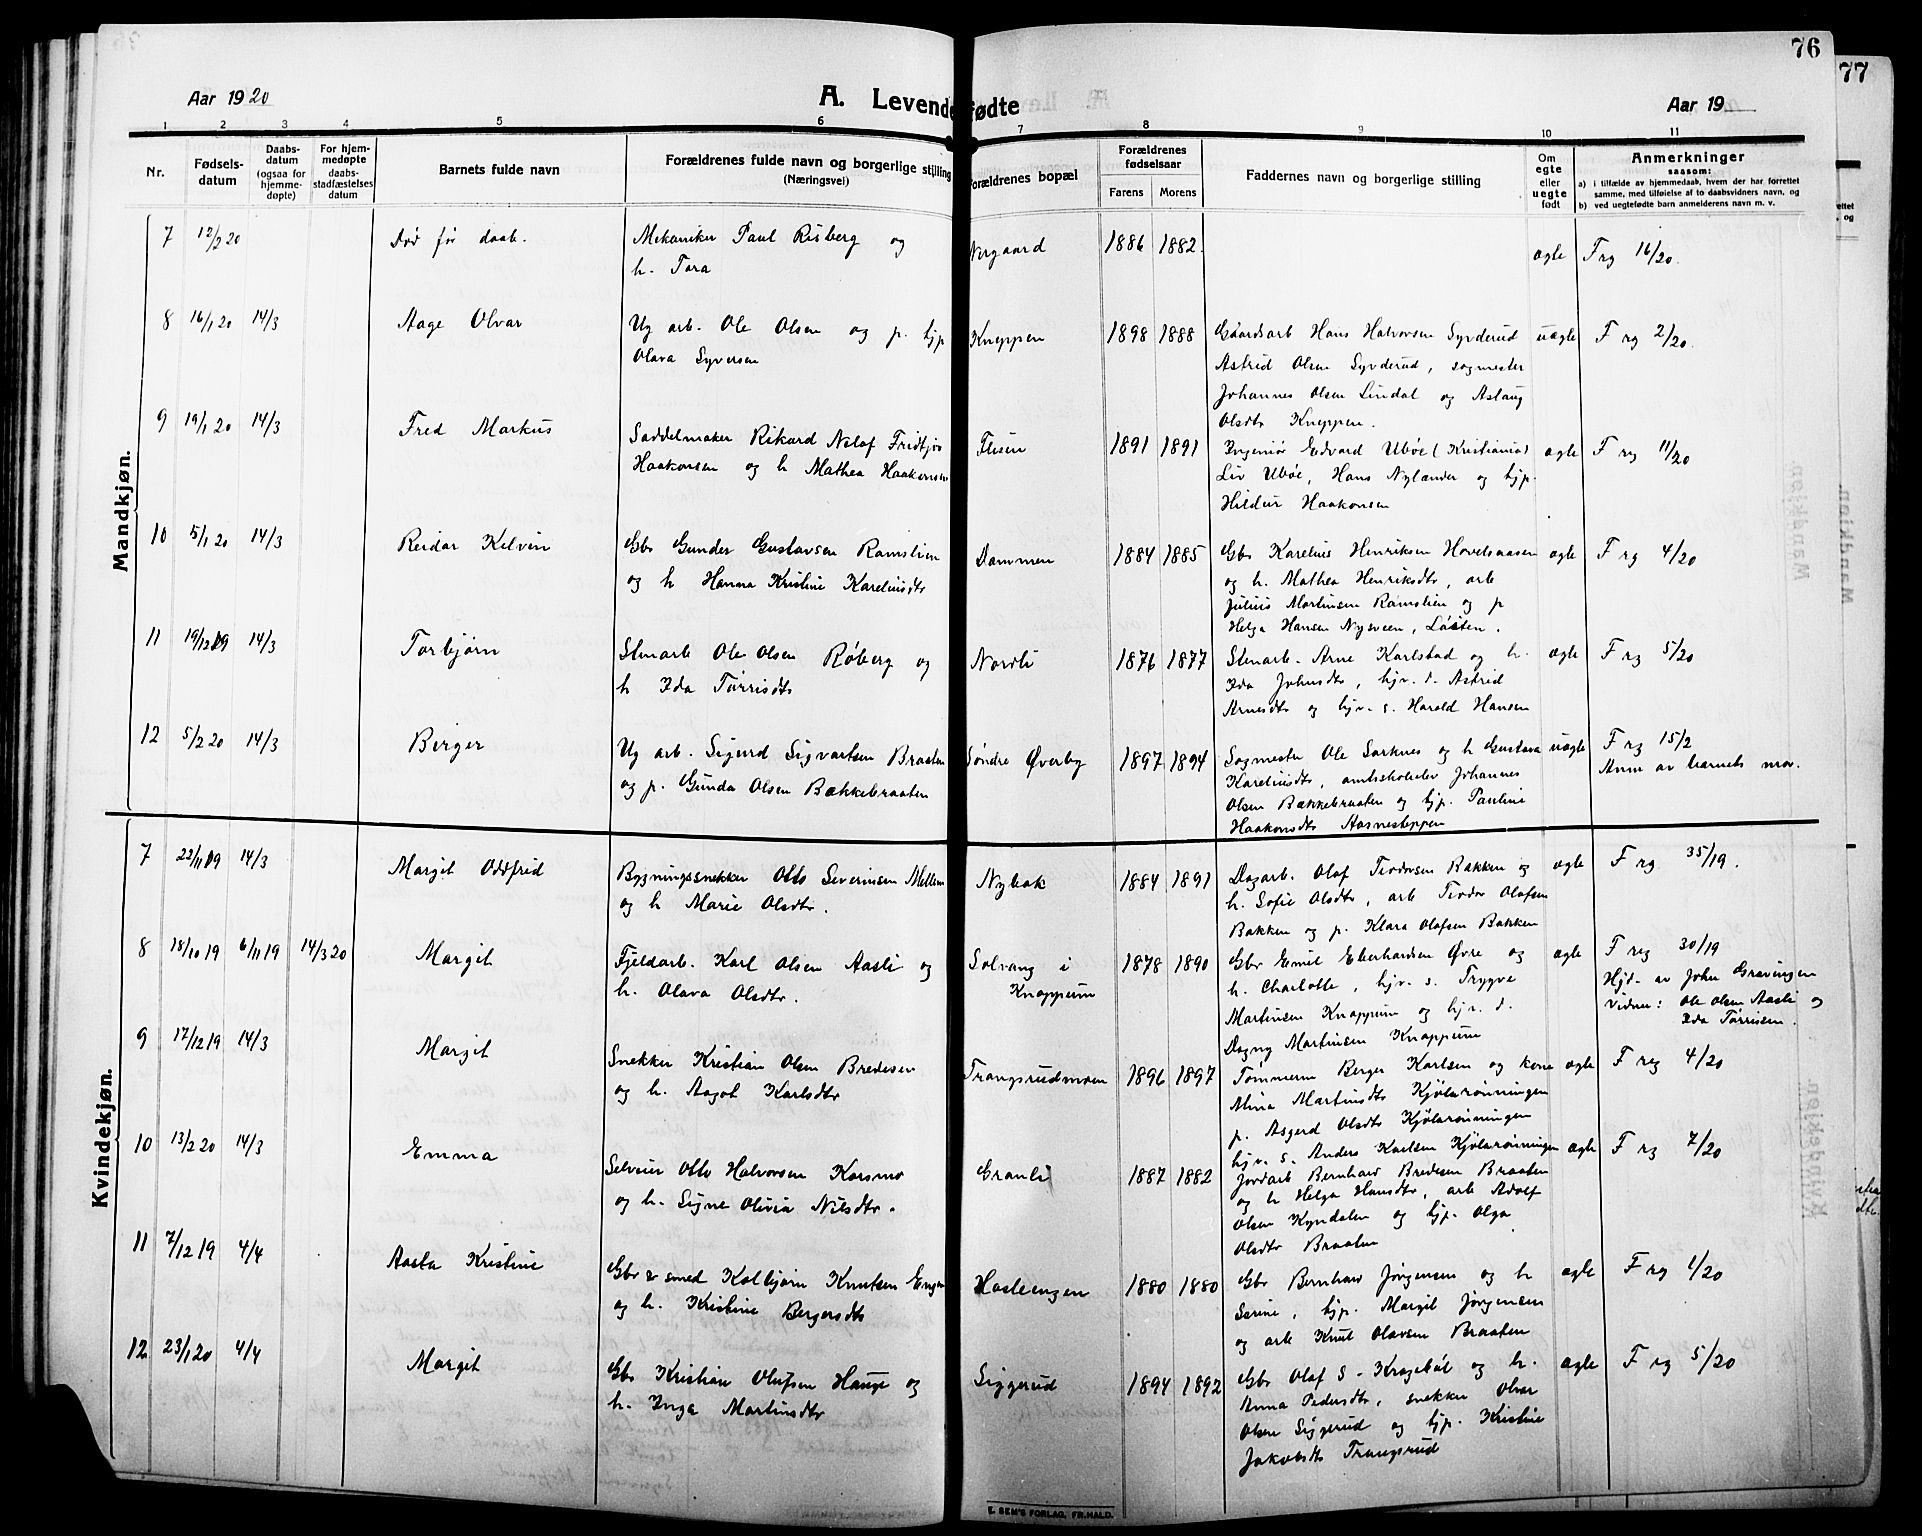 76
77
Aar 1920
A. Levende fødte
Aar 19
1 2 3 4 5 6 7 8 9 10 11
Nr.
Fødsels-
datum
Daabs-
datum
(ogsaa for
hjemme-
døpte)
For hjem-
medøpte
daabs-
stadfæstelses
datum
Barnets fulde navn
Forældrenes fulde navn og borgerlige stilling
(Næringsvei)
Forældrenes bopæl
Forældrenes
fødselsaar
Farens Morens
Faddernes navn og borgerlige stilling
Om
egte
eller
uegte
født
Anmerkninger
saasom:
a) i tilfælde av hjemmedaab, hvem der har forrettet
samme, med tilføielse af to daabsvidners navn, og
b) ved uegtefødte barn anmelderens navn m. v.
Mandkjøn.
7 12/2 20 Død før daab. Mekaniker Paul Risberg og Norgaard 1886 1882 ægte F rg 16/20.
h. Tora
8 16/1 20 14/3 Aage Olvar Ug arb. Ole Olsen og p. hjp Kneppen 1898 1888 Gaardsarb Hans Halvorsen Syvderud uægte F rg 2/20.
Olava Syversen Astrid Olsen Syvderud, sagmester
Johannes Olsen Lindal og Aslaug
Olsdtr Kneppen.
9 19/1 20 14/3 Fred Markus Saddelmaker Rikard Nilof Fridtjov Flisen 1891 1891 Ingeniør Edvard Ubøe (Kristiania) ægte F rg 11/20
Haakonsen og h Mathea Haakonsen Liv Ubøe, Hans Nylænder og hjp.
Hildur Haakonsen
10 5/1 20 14/3 Reidar Kelvin Gbr Gunder Gustavsen Ramslien Dammen 1884 1885 Gbr Karelius Henriksen Hovelsaasen ægte F rg 4/20
og h Hanna Kristine Kareliusdtr og h. Mathea Henriksdtr, arb
Julius Martinsen Ramslien og p
Helga Hansen Nysveen, Løiten.
11 19/12 19 14/3 Torbjørn Stenarb Ole Olsen Røberg og Nordli 1876 1877 Stenarb. Arne Karlstad og h. ægte F rg 5/20
h Ida Tørrisdtr Ida Johnsdtr, hjv. d. Astrid
Arnesdtr og hjv. s. Harald Hansen
12 5/2 20 14/3 Berger Ug arb. Sigurd Sigvartsen Braaten Søndre Øverby 1897 1894 Sagmester Ole Sarknes og h Gustava uægte F rg 15/2
og p. Gunda Olsen Bækkebraaten Kareliusdtr, amtsskoleelev Johannes Anm av barnets mor.
Olsen Bækkebraaten og hjp. Pauline
Haakonsdtr Aasnesteppen
Kvindekjøn.
7 22/11 19 14/3 Margit Oddfrid Bygningssnekker Otto Severinsen Mellem Nybak 1884 1891 Dagarb. Olaf Tiodorsen Bakken og ægte F rg 35/19.
og h Marie Olsdtr. h. Sofie Olsdtr, arb Tiodor Olafsen
Bakken og p. Klara Olafsen Bakken
8 18/10 19 6/11 19 14/3 20 Margit Fjeldarb. Karl Olsen Aasli og Solvang i 1878 1890 Gbr Emil Eberhardsen Øvre og ægte F reg 30/19
h. Olava Olsdtr. Knappum h. Charlotte, hjv. s. Trygve Hjd. av John Gravingen
Martinsen Knappum og hjv. d. Vidner: Ole Olsen Aasli og
Dagny Martinsen Knappum Ida Tørrisen.
9 17/12 19 14/3 Margit Snekker Kristian Olsen Bredesen Trangsrudmoen 1896 1897 Tømmerm Berger Karlsen og kone ægte F reg 4/20
og h. Aagot Karlsdtr Mina Martinsdtr Kjølarønningen
p. Asgerd Olsdtr Kjølarønningen
hjv. s. Anders Karlsen Kjølarønningen
10 13/2 20 14/3 Emma Selveier Otto Halvorsen Korsmo Granli 1887 1882 Jordarb Bernhard Bredesen Braaten ægte F rg 7/20
og h. Signe Olivia Nilsdtr. og h Helga Hansdtr, arb Adolf
Olsen Kyndalen og hjp. Olga
Olsdtr Braaten
11 7/12 19 4/4 Aasta Kristine Gbr & smed Kolbjørn Knutsen Engen Hasleengen 1880 1880 Gbr Bernhard Jørgensen og h ægte F rg 1/20
og h. Kristine Bergersdtr Serine, hjp. Margit Jørgensen
og arb Knut Olavsen Braaten
12 23/1 20 4/4 Margit Gbr Kristian Olufsen Hauge og Siggerud 1894 1892 Gbr Olaf S. Kragebøl og h. ægte F rg 5/20
h. Inga Martinsdtr Anna Pedersdtr, snekker Olvar
Olsen Siggerud og hjp. Kristine
Jakobsdtr Trangsrud
E. SEM'S FORLAG, FR.HALD.